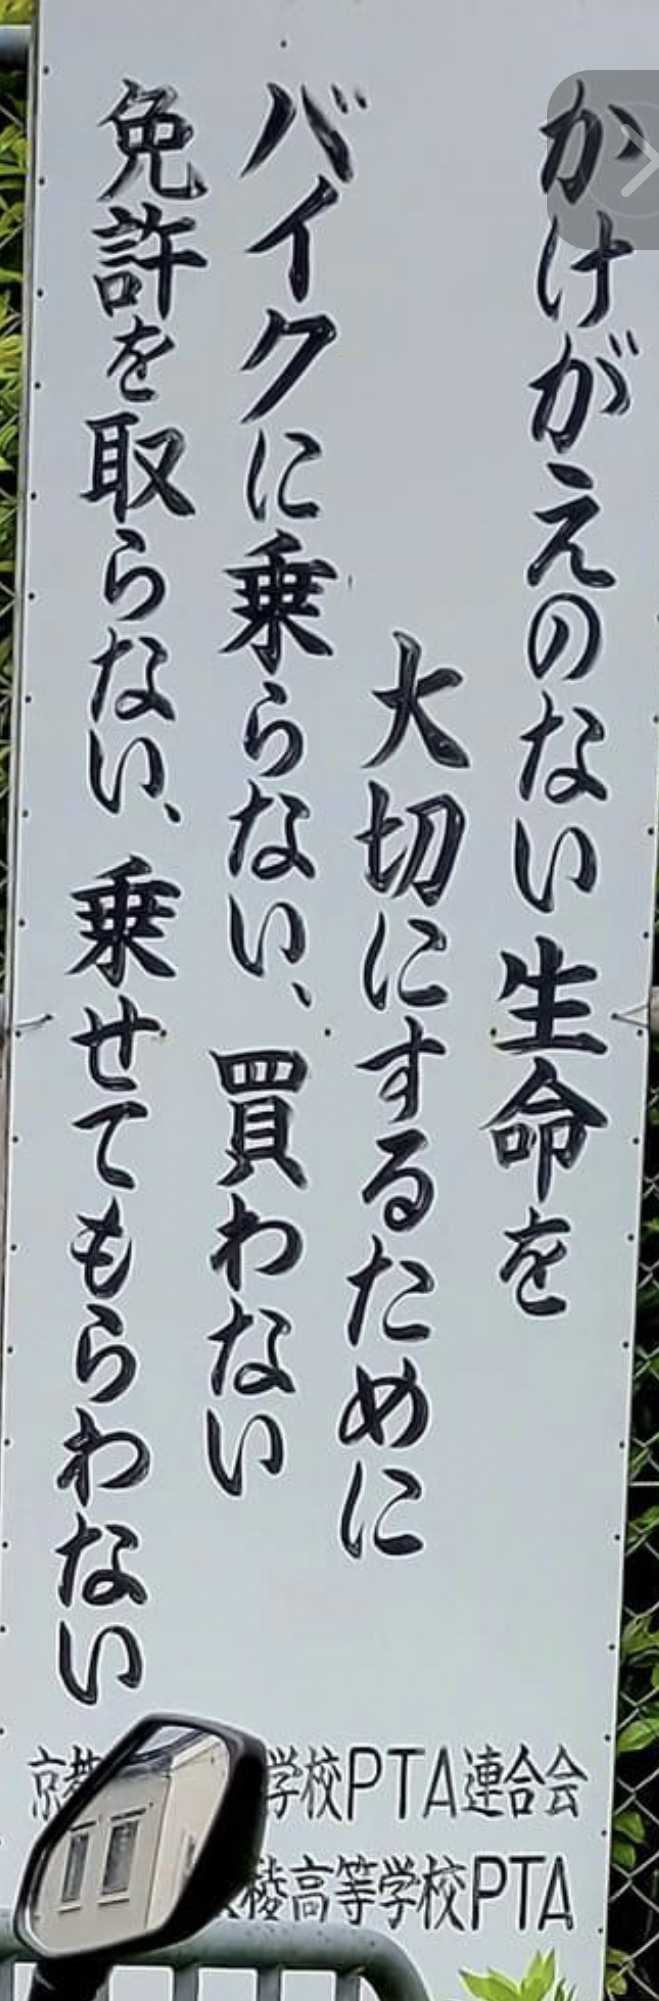 かけがえのない生命を
大切にするために
バイクに乗らない、買わない
免許を取らない、乗せてもらわない
京都 学校PTA連合会
稜高等学校PTA